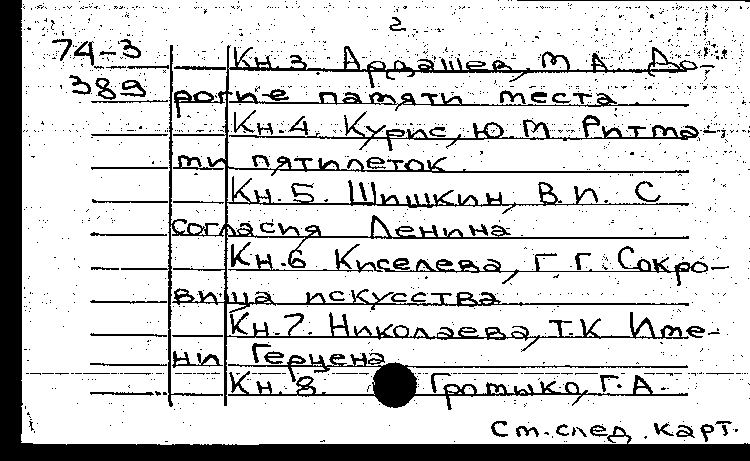 2
74-3
389
Кн. 3. Ардашев, М. А. До-
рогие памяти места.
Кн. 4. Курис, Ю. М. Ритма-
ми пятилеток.
Кн. 5. Шишкин, В. И. С
согласия Ленина.
Кн. 6. Киселева, Г. Г. Сокро-
вища искусства.
Кн. 7. Николаева, Т. К. Име-
ни Герцена.
Кн. 8. Громыко, Г. А.
См. след. карт.